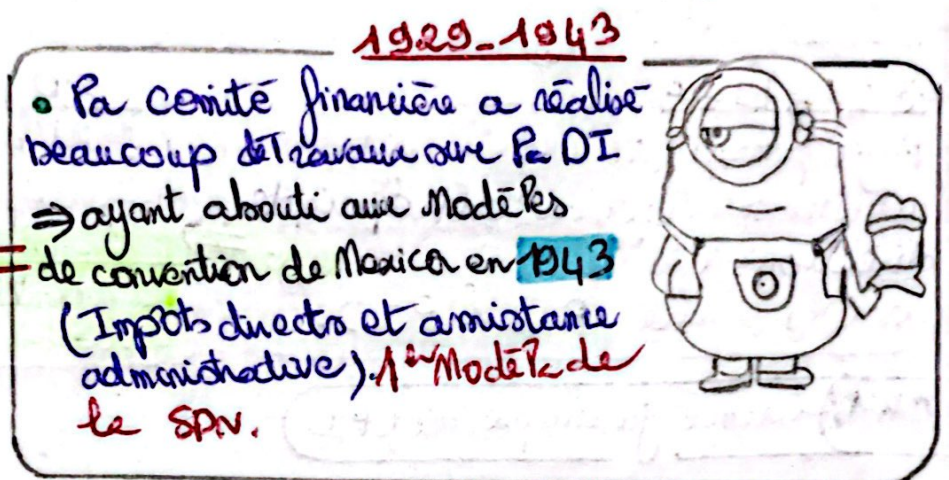 1929-1943
• La comité financière a réalisé
beaucoup de Travaux sur la DI
⇒ ayant abouti aux Modèles
de convention de Mexico en 1943
(Impôts directs et assistance
administrative). 1er Modèle de
la SDN.